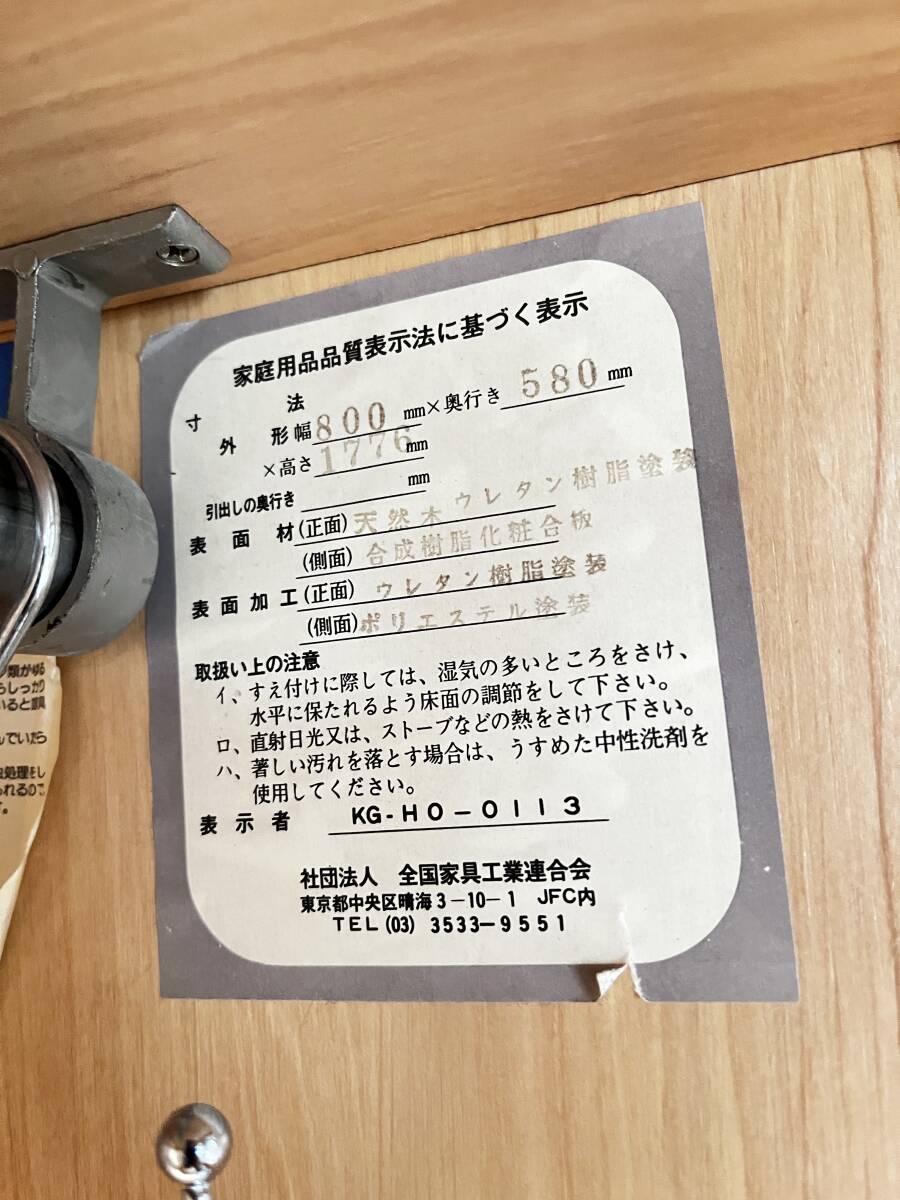 家庭用品品質表示法に基づく表示
寸法
外形幅800mm×奥行き580mm
×高さ1776mm
引出しの奥行き mm
表面材(正面)天然木ウレタン樹脂塗装
(側面)合成樹脂化粧合板
表面加工(正面)ウレタン樹脂塗装
(側面)ポリエステル塗装
取扱い上の注意
イ、すえ付けに際しては、湿気の多いところをさけ、
水平に保たれるよう床面の調節をして下さい。
ロ、直射日光又は、ストーブなどの熱をさけて下さい。
ハ、著しい汚れを落とす場合は、うすめた中性洗剤を
使用してください。
表示者 KG-HO-0113
社団法人 全国家具工業連合会
東京都中央区晴海3-10-1 JFC内
TEL(03) 3533-9551
類がゆ
らしっかり
いると道具
んでいたら
処理をし
られるので
す。